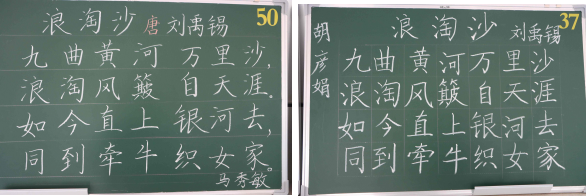 50
浪淘沙 唐 刘禹锡
九曲黄河万里沙,
浪淘风簸自天涯。
如今直上银河去,
同到牵牛织女家。
马秀敏
37
浪淘沙 刘禹锡
胡彦娟
九曲黄河万里沙
浪淘风簸自天涯
如今直上银河去
同到牵牛织女家